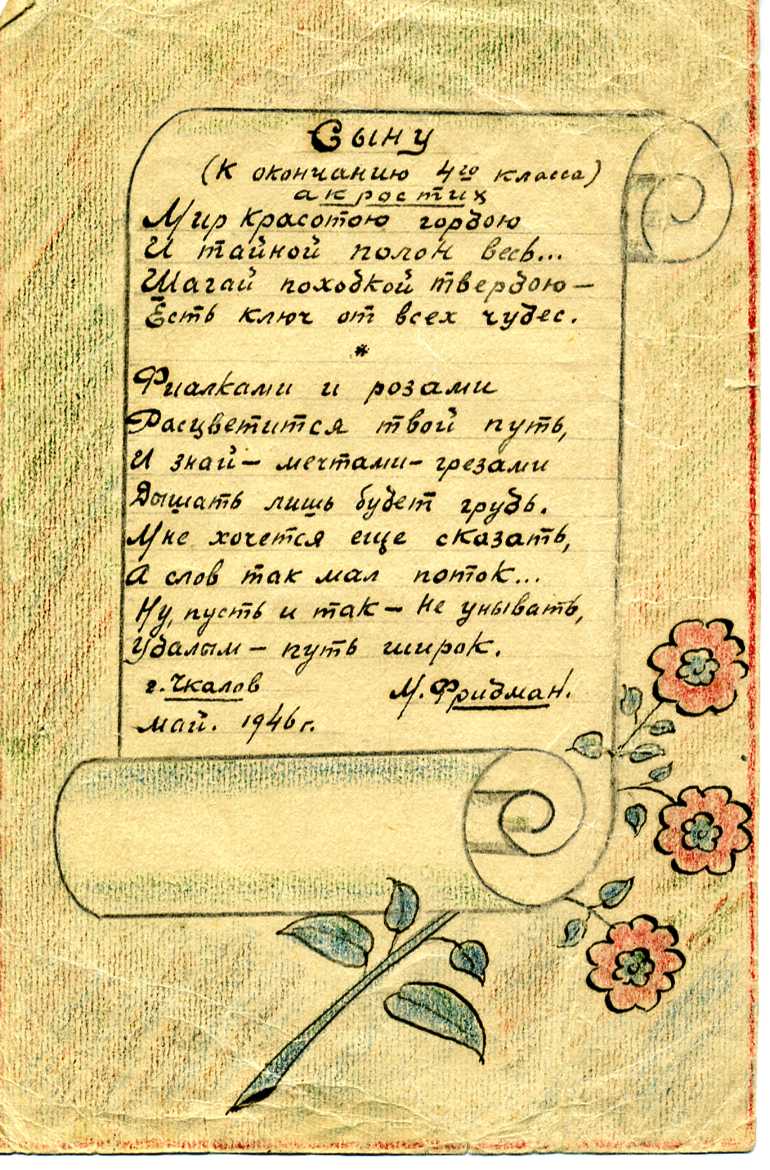 Сыну
(К окончанию 4го класса)
акростих
Мир красотою гордою
И тайной полон весь...
Шагай походкой твердою —
Есть ключ от всех чудес.
*
Фиалками и розами
Расцветится твой путь,
И знай — мечтами - грезами
Дышать лишь будет грудь.
Мне хочется еще сказать,
А слов так мал поток...
Ну, пусть и так — не унывать,
Удалым — путь широк.
г. Чкалов М. Фридман.
май. 1946 г.